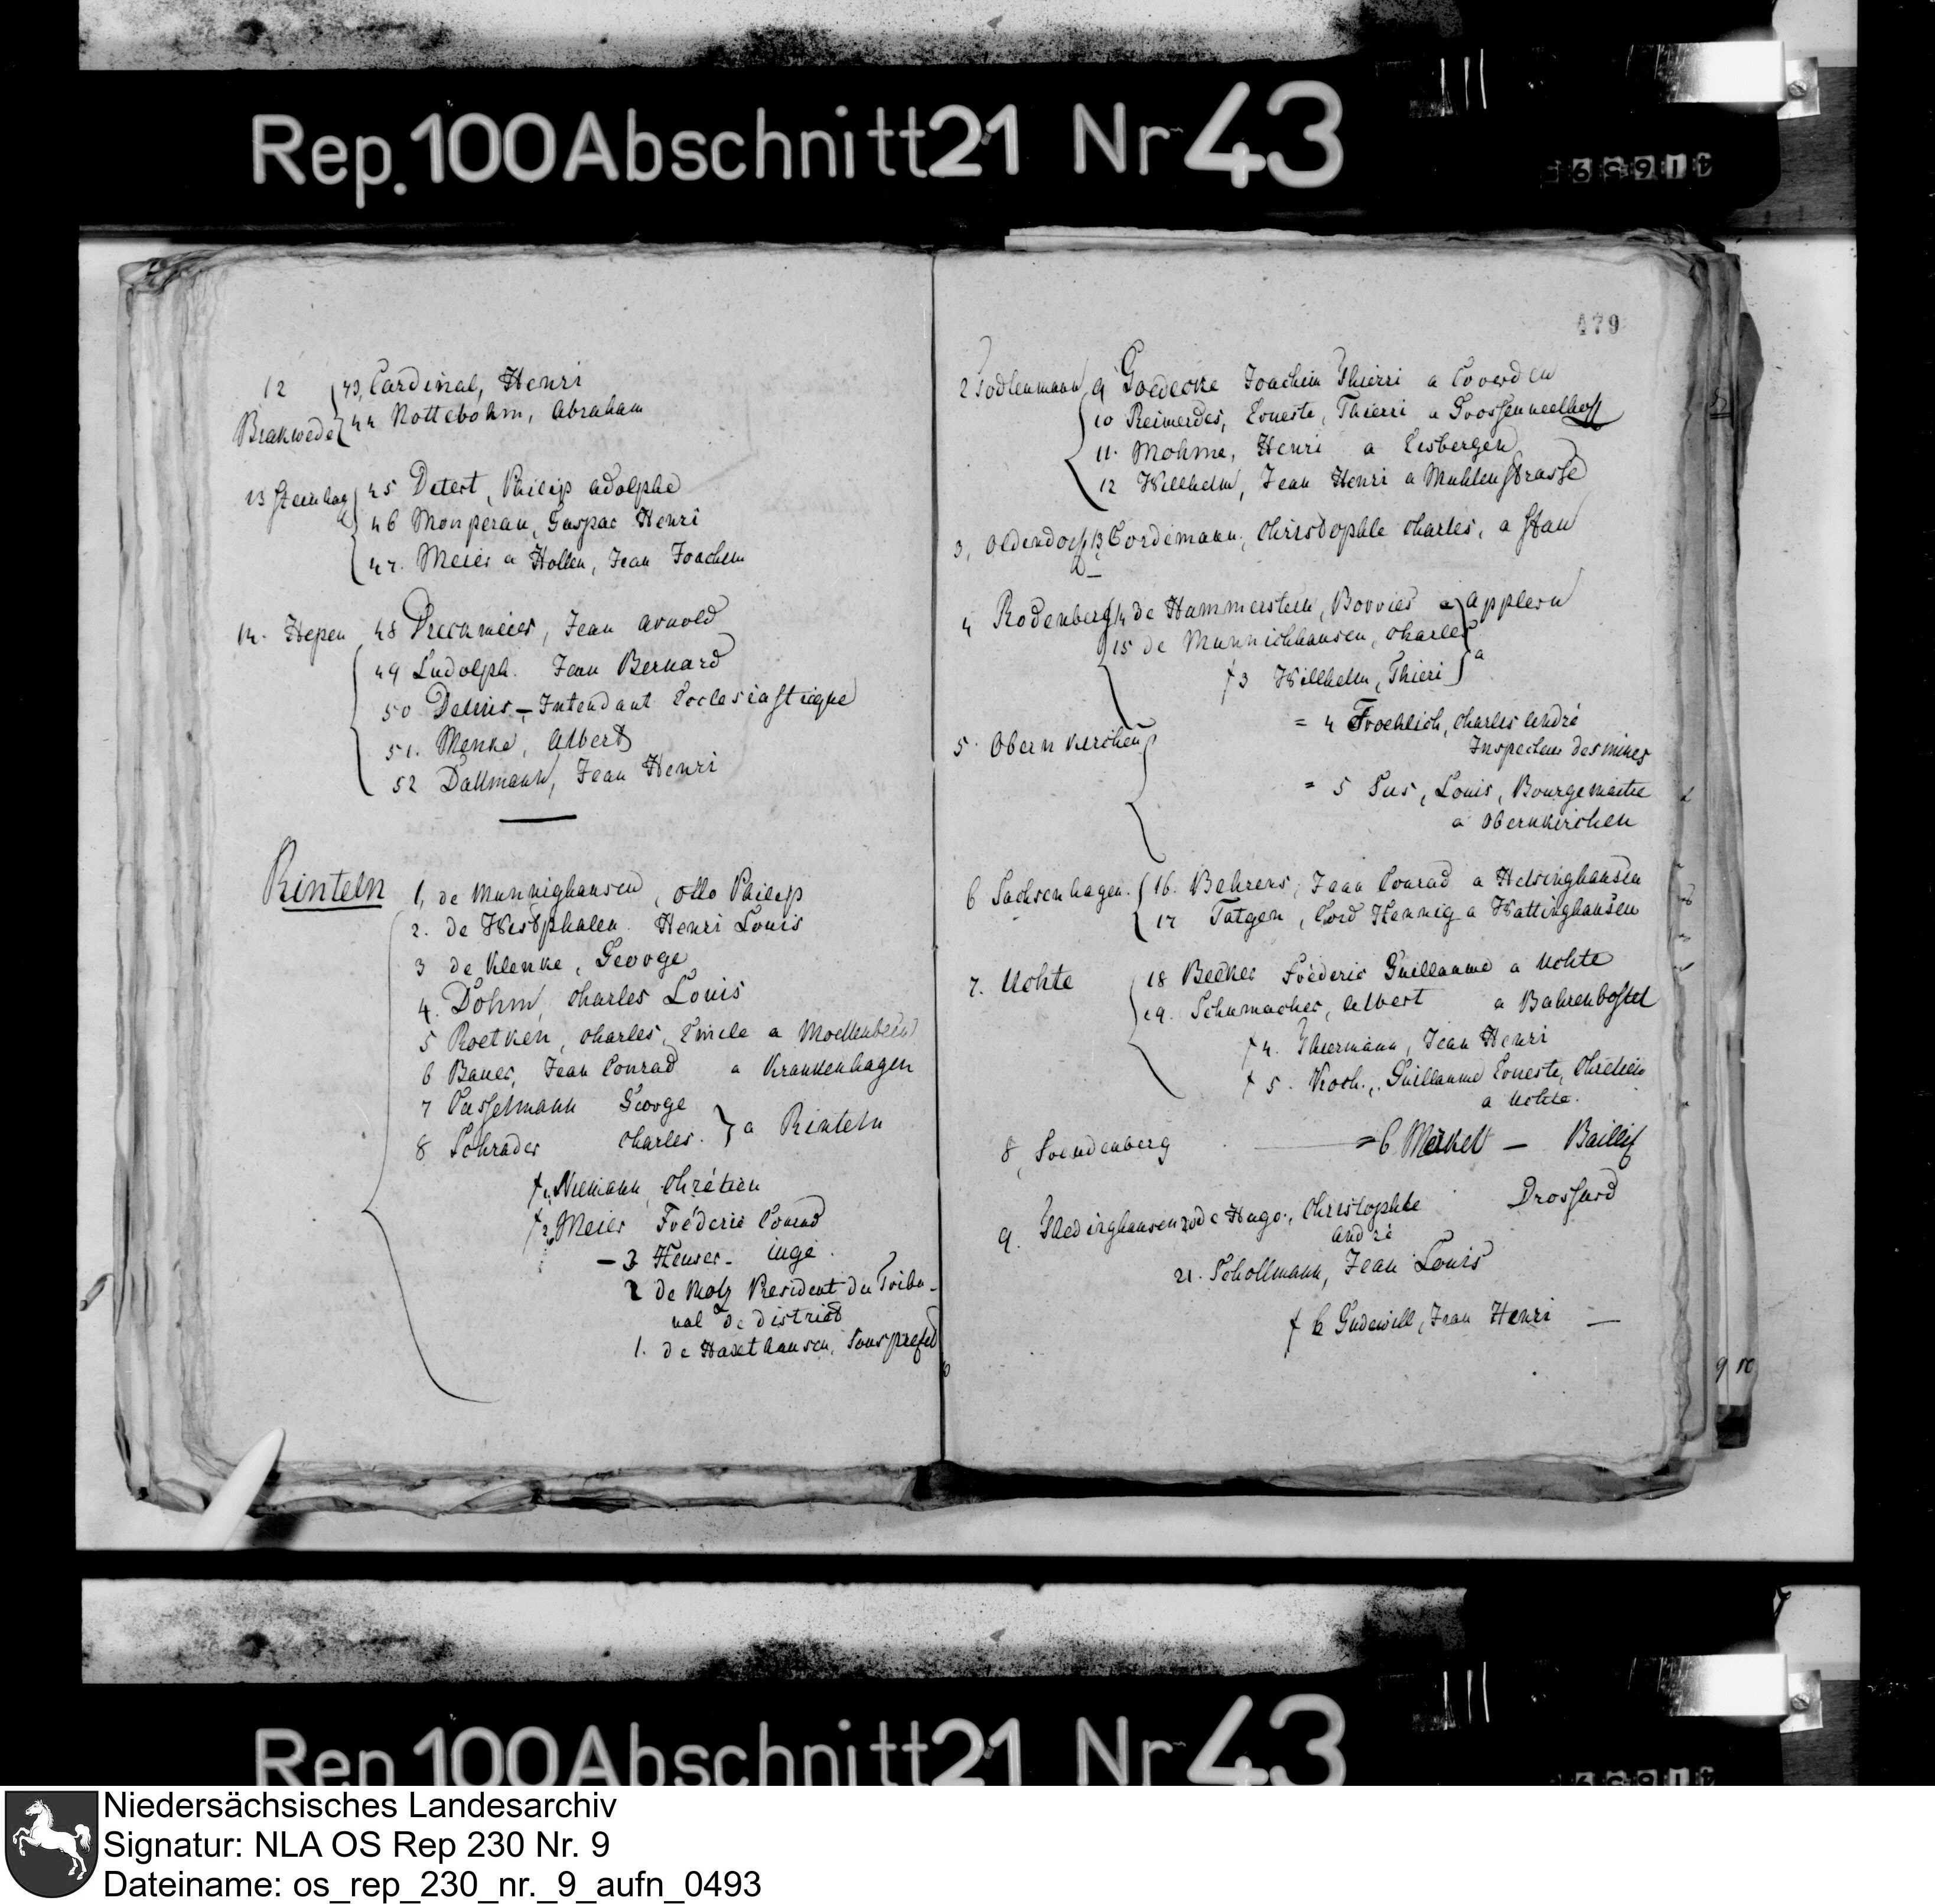 Rep. 100 Abschnitt 21 Nr 43
12 43, Cardinal, Henri
Brakwede 44 Nottebohm, Abraham
13 Steinhag 45 Detert, Philip Adolphe
46 Monperau, Gaspar Henri
47. Meier a Hollen, Jean Joachim
14. Hepen 48 Dreckmeier, Jean Arnold
49 Ludolph. Jean Bernard
50 Delius - Intendant Ecclesiastique
51. Menke, Albert
52 Dallmann, Jean Henri
Rinteln 1, de Munnighausen, Otto Philip
2. de Westphalen. Henri Louis
3 de Klenke, George
4. Dohm, Charles Louis
5 Roetken, Charles, Emile a Moellenbeck
6 Bauer, Jean Conrad a Krankenhagen
7 Casselmann George
8 Schrader Charles. } a Rinteln
f 1. Niemann, Chrétien
f 2 Meier Fréderic Conrad
- 3 Heuser - inge.
2 de Motz President du Tribu-
nal de district
1. de Haxthausen, Sousprefet
479
2 Todtenmann 9 Goedecke Joachim Thierri a Coverden
10 Reimerdes, Erneste, Thierri a Grossenwelhoff
11. Mohme, Henri a Eisbergen
12 Willhelm, Jean Henri a Muhlenstrasse
3, Oldendorf 13 Cordemann, Christophle Charles, a Hau
4 Rodenberg 14 de Hammerstein, Borries a Applern
15 de Munnichhausen, Charles
f 3 Willhelm, Thieri } a
5. Obernkirchen = 4 Froehlich, Charles André
Inspecteur des mines
= 5 Sus, Louis, Bourgemaitre
a Obernkirchen
6 Sachsenhagen. 16. Behrens, Jean Conrad a Helsinghausen
17 Tatgen, Cord Hennig a Wattinghausen
7. Uchte 18 Becker Fréderic Guillaume a Uchte
19. Schumacher, Albert a Bahrenbostel
f 4. Thiermann, Jean Henri
f 5. Kroch., Guillaume Erneste, Chrétien
a Uchte.
8, Freudenberg = 6 Merkel - Baillif
9. Thedinghausen 20 de Hugo., Christophle Drossard
André
21. Schollmann, Jean Louis
f 6 Gudewill, Jean Henri -
Rep 100 Abschnitt 21 Nr 43
Niedersächsisches Landesarchiv
Signatur: NLA OS Rep 230 Nr. 9
Dateiname: os_rep_230_nr._9_aufn_0493